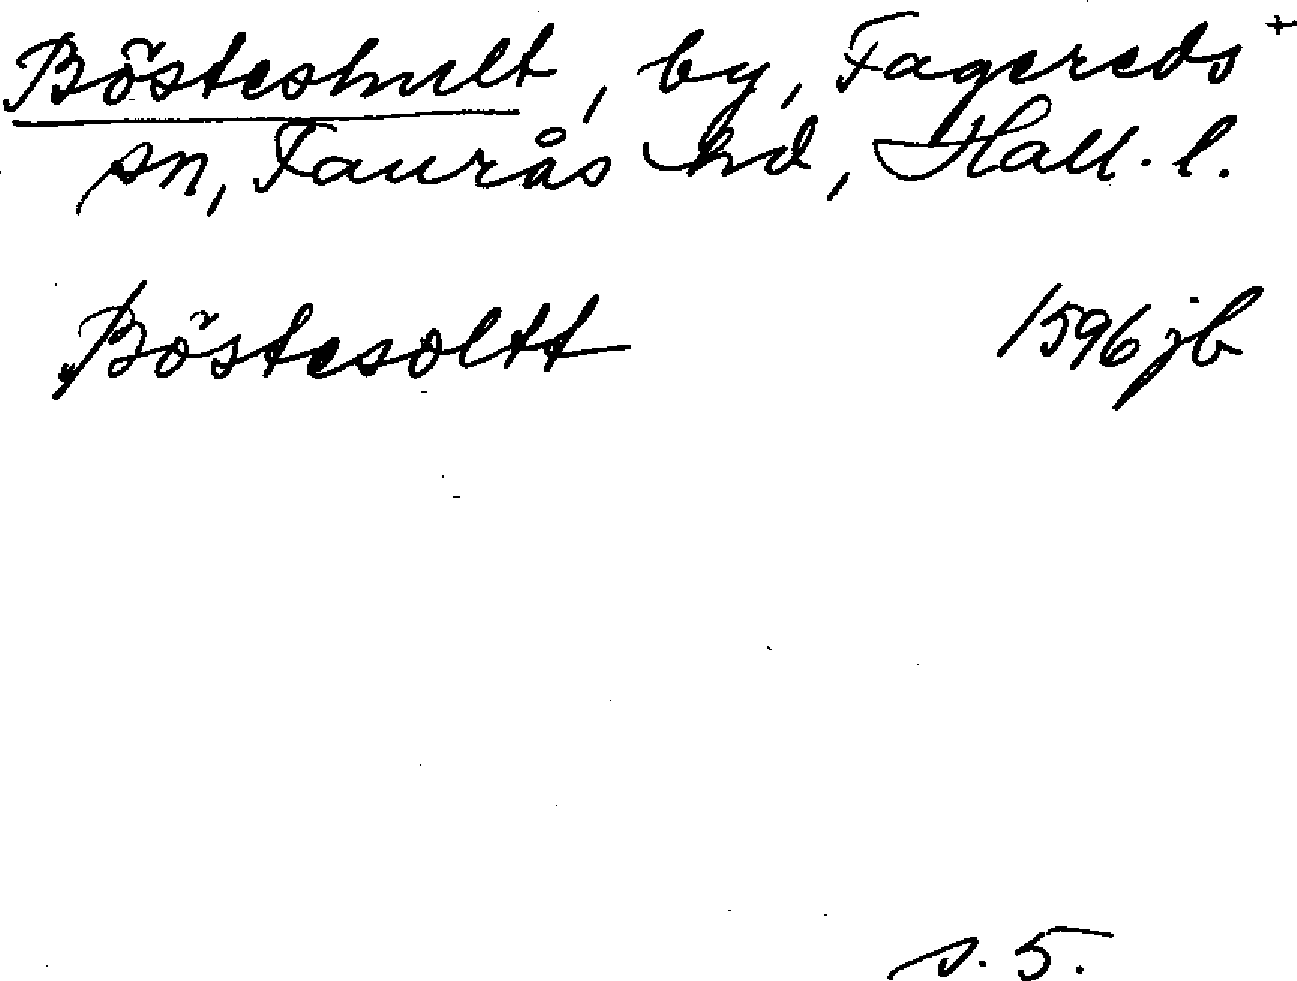 Bösteshult, by, Fagereds +
sn, Faurås hd, Hall. l.
Böstesoltt 1596 jb
s. 5.